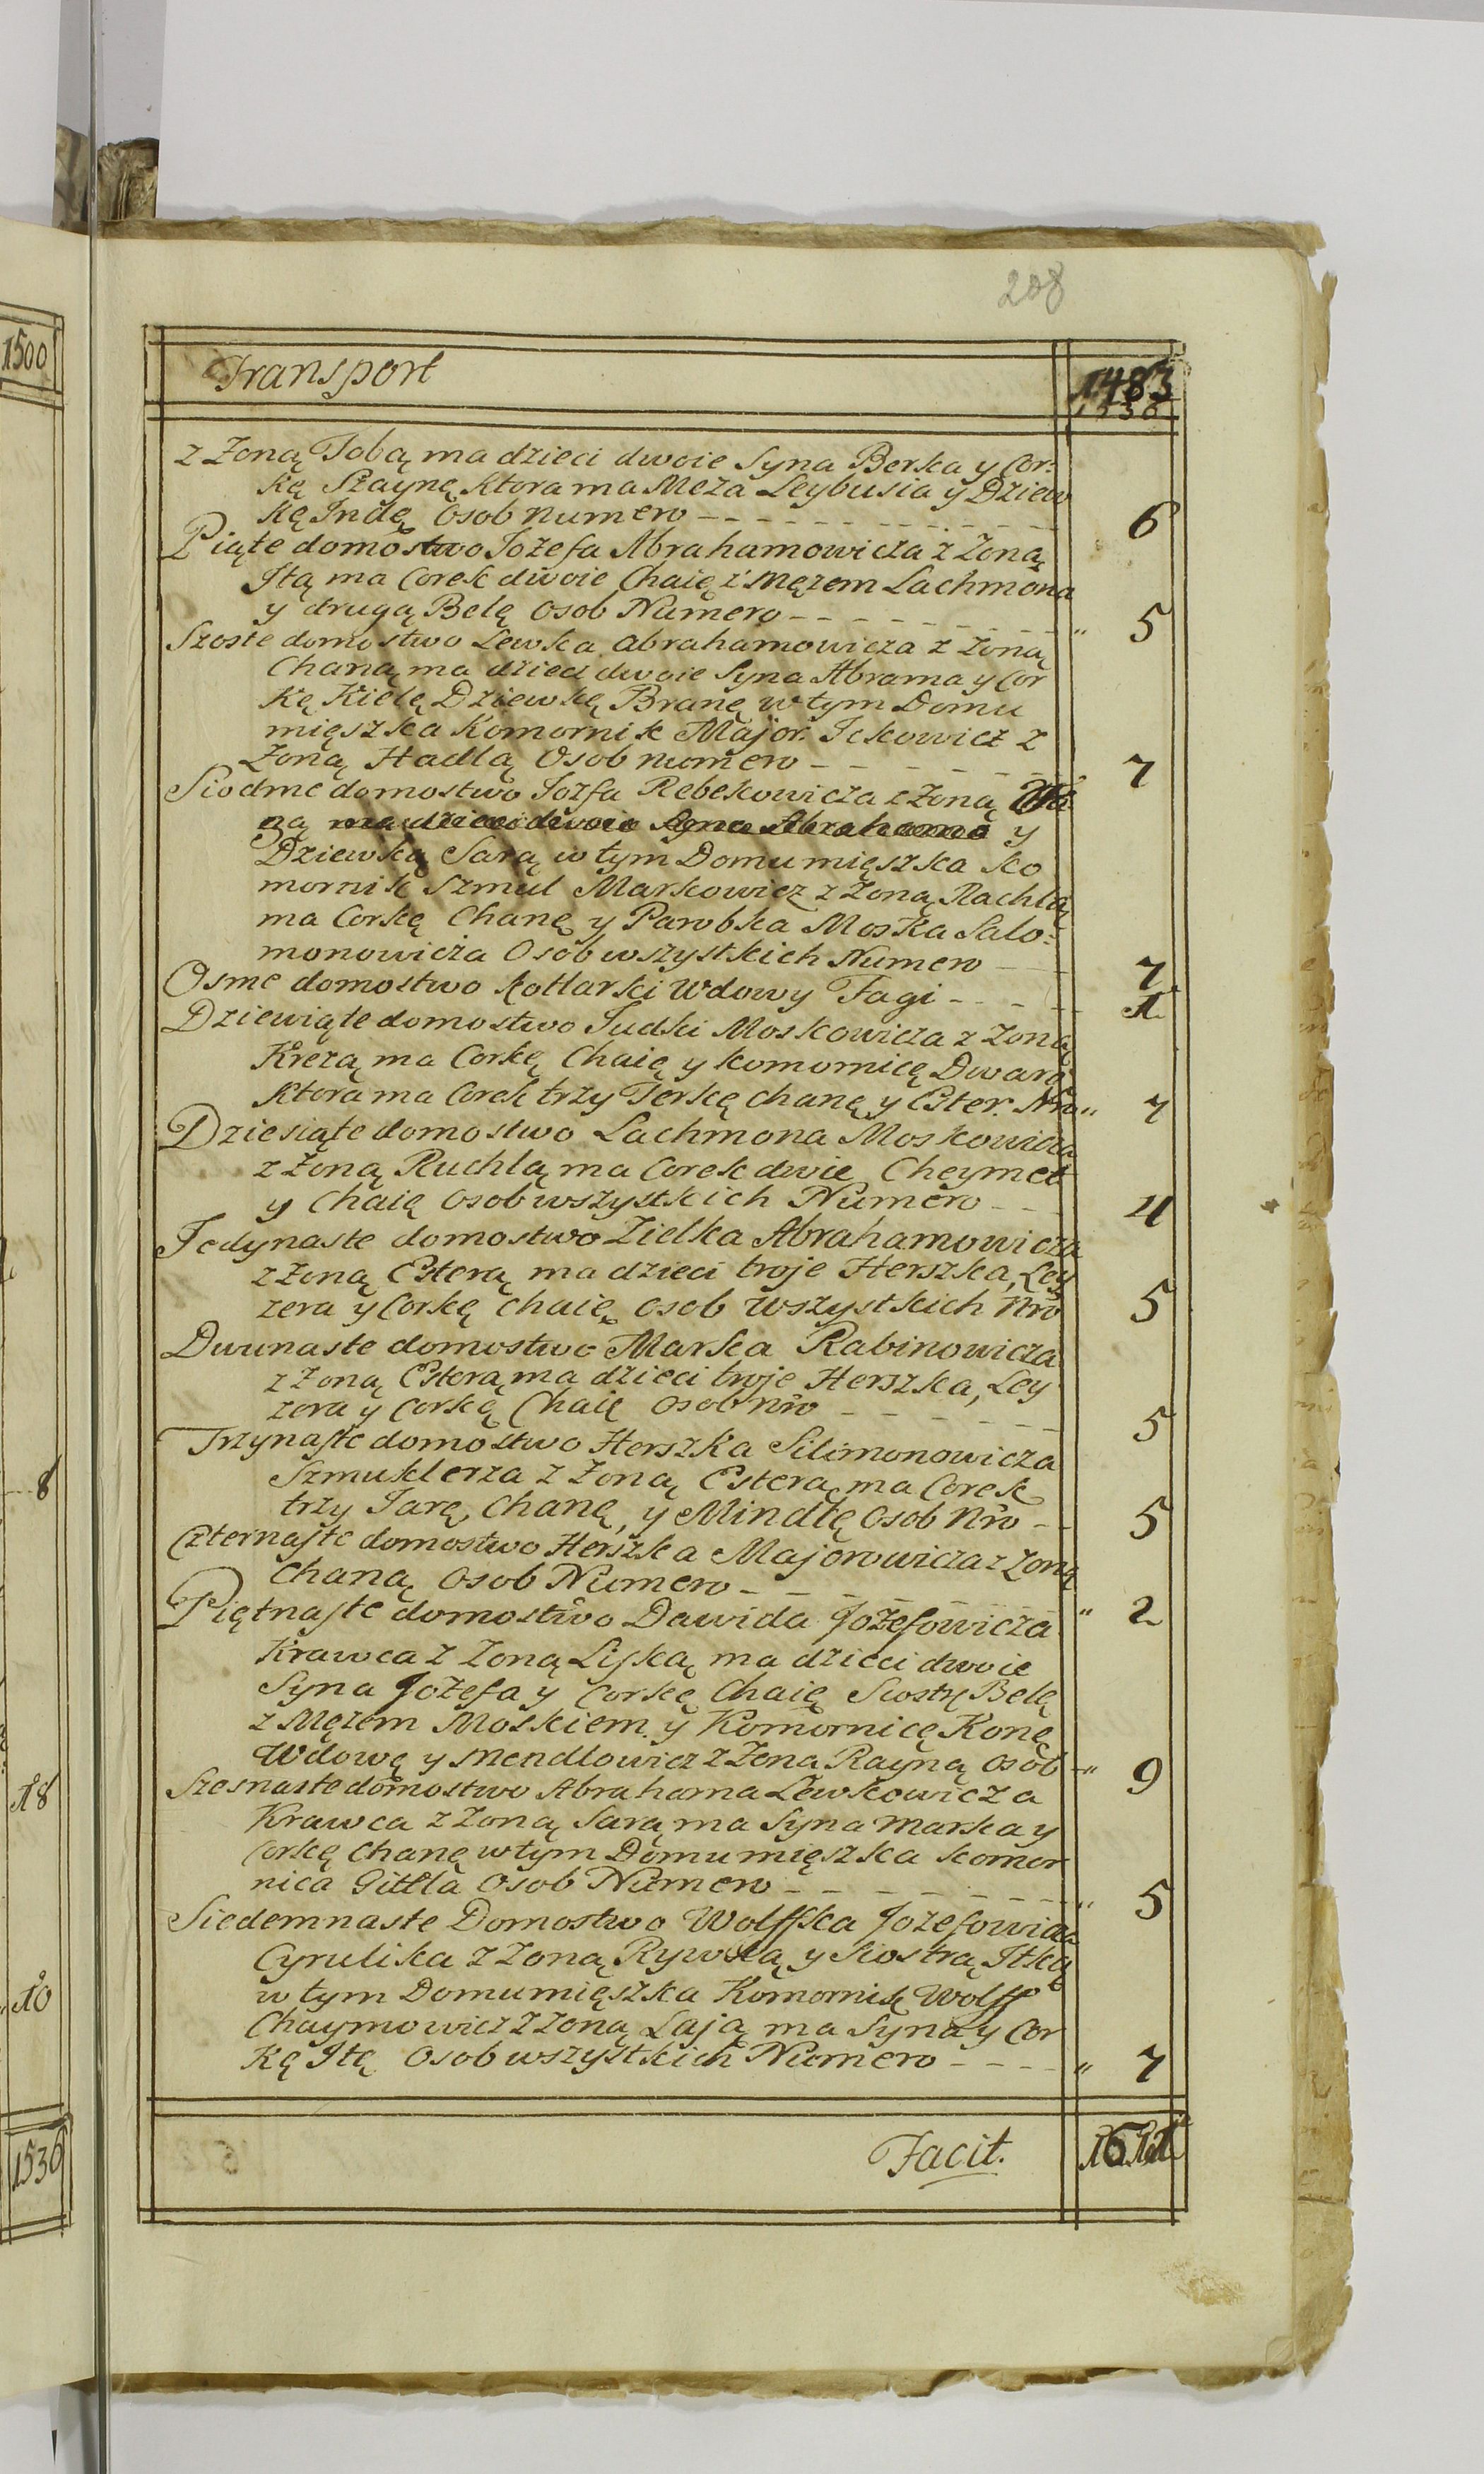 1500
8
18
10
1536
208
Transport 1483
1536
z Zoną Tobą ma dzieci dwoie Syna Berka y Cor-
kę Szaynę ktora ma Męza Leybusia y Dziew
kę Indę Osob numero - - - 6
Piąte domostwo Iozefa Abrahamowicza z Zoną
Itą ma Corek dwoie Chaię z Męzem Lachmona
y drugą Belę Osob Numero - - - " 5
Szoste domostwo Lewka abrahamowicza z Zoną
Chaną ma dzieci dwoie Syna Abrama y Cor
kę Kielę Dziewkę Branę w tym Domu
mięszka Komornik Major Ickowicz z
Zoną Hadlą Osob numero - - - 7
Siodme domostwo Iozfa Rebekowicza z Zoną
ma dzieci dwoie Syna Abrahama y
Dziewką Sarą w tym Domu mięszka ko
mornik Szmul Markowicz z Zoną Rachlą
ma Corkę Chanę y Parobka Moska Salo-
monowicza Osob wszystkich Numero - - 7
Osme domostwo kotlarki Wdowy Fagi - - - 1
Dziewiąte domostwo Judki Moskowicza z Zoną
Krezą ma Corkę Chaię y komornicę Dwarę
ktora ma Corek trzy Terkę chanę y Ester. Nro " 7
Dziesiąte domostwo Lachmona Moskowicza
z Zoną Ruchlą ma Corek dwie Cheymet
y Chaię Osob wszystkich Numero - - 4
Jedynaste domostwo Zielka Abrahamowicza
z Zoną Esterą ma dzieci troje Herszka, Ley
zera y Corkę chaię Osob wszystkich Nro 5
Dwunaste domostwo Marka Rabinowicza
z Zoną Esterą ma dzieci troje Herszka, Ley
zera y Corkę Chaię Osob Nro - - - 5
Trzynaste domostwo Herszka Silimonowicza
Szmuklerza z Zoną Esterą ma Corek
trzy Sarę, Chanę, y Mindlę Osob Nro - - 5
Czternaste domostwo Herszka Majorowicza z Zoną
Chaną Osob Numero - - - " 2
Piętnaste domostwo Dawida Jozefowicza
Krawca z Zoną Liską ma dzieci dwoie
Syna Jozefa y Corkę Chaię Siostrę Belę
z Męzem Moskiem y Komornicę Konę
Wdowę y Mendlowicz z Zoną Rayną Osob - " 9
Szesnaste domostwo Abrahama Lewkowicza
Krawca z Zoną Sarą ma Syna Marka y
Corkę Chanę w tym Domu mięszka komor
nica Gittla Osob Numero - - - " 5
Siedemnaste Domostwo Wolffka Jozefowicza
Cyrulika z Zoną Rywką y Siostrą Itką
w tym Domu mięszka Komornik Wolff
Chaymowicz z Zoną Lają ma Syna y Cor
kę Itę Osob wszystkich Numero - - - " 7
Facit. 1611